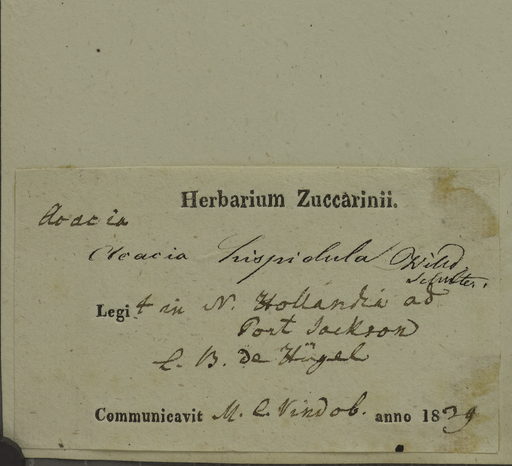 Herbarium Zuccarinii.
Acacia
Acacia hispidula Willd
Legit in N. Hollandia ad
Port Jackson
C. B. de Hügel
Communicavit M. C. Vindob. anno 1839